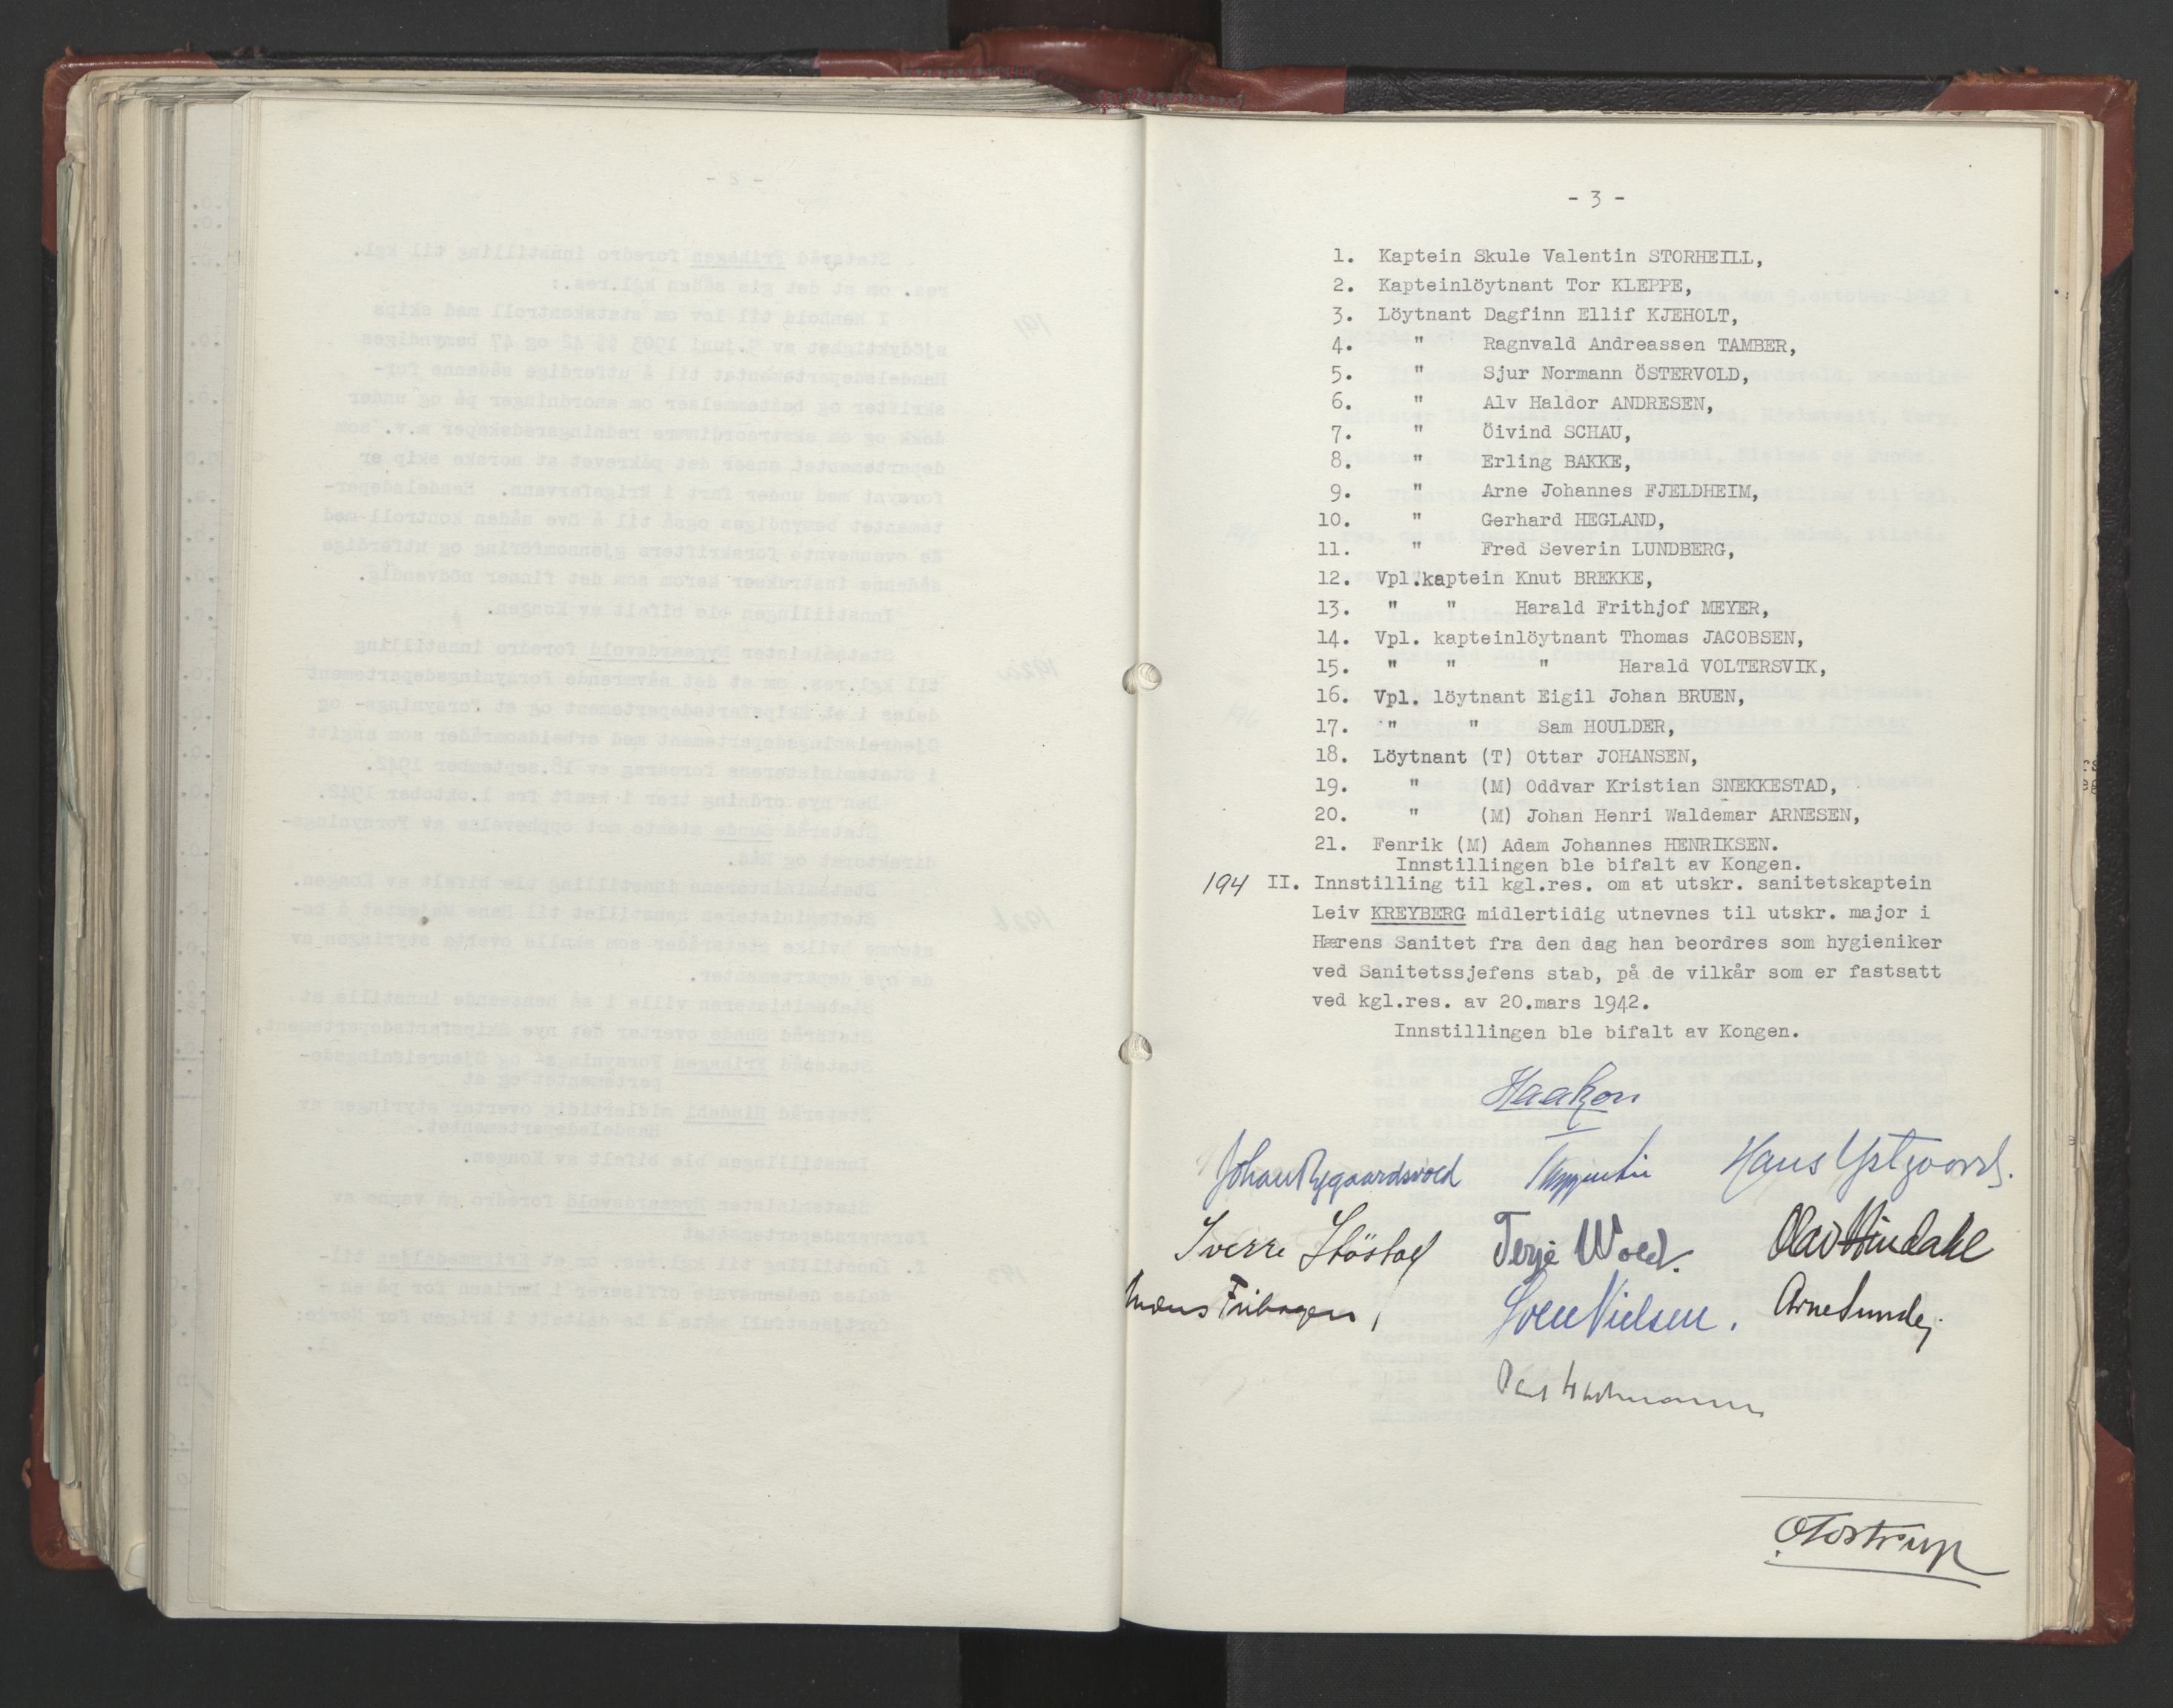 - 3 -
1. Kaptein Skule Valentin STORHEILL,
2. Kapteinlöytnant Tor KLEPPE,
3. Löytnant Dagfinn Ellif KJEHOLT,
4. " Ragnvald Andreassen TAMBER,
5. " Sjur Normann ÖSTERVOLD,
6. " Alv Haldor ANDRESEN,
7. " Öivind SCHAU,
8. " Erling BAKKE,
9. " Arne Johannes FJELDHEIM,
10. " Gerhard HEGLAND,
11. " Fred Severin LUNDBERG,
12. Vpl.kaptein Knut BREKKE,
13. " " Harald Frithjof MEYER,
14. Vpl. kapteinlöytnant Thomas JACOBSEN,
15. " " " Harald VOLTERSVIK,
16. Vpl. löytnant Eigil Johan BRUEN,
17. " " Sam HOULDER,
18. Löytnant (T) Ottar JOHANSEN,
19. " (M) Oddvar Kristian SNEKKESTAD,
20. " (M) Johan Henri Waldemar ARNESEN,
21. Fenrik (M) Adam Johannes HENRIKSEN.
Innstillingen ble bifalt av Kongen.
194 II. Innstilling til kgl.res. om at utskr. sanitetskaptein
Leiv KREYBERG midlertidig utnevnes til utskr. major i
Hærens Sanitet fra den dag han beordres som hygieniker
ved Sanitetssjefens stab, på de vilkår som er fastsatt
ved kgl.res. av 20.mars 1942.
Innstillingen ble bifalt av Kongen.
Haakon
Johan Nygaardsvold Trygve Lie Hans Ystgaard.
Sverre Støstad Terje Wold. Olav Hindahl
Anders Frihagen, Sven Nielsen. Arne Sunde,
Paul Hartmann
O Tostrup